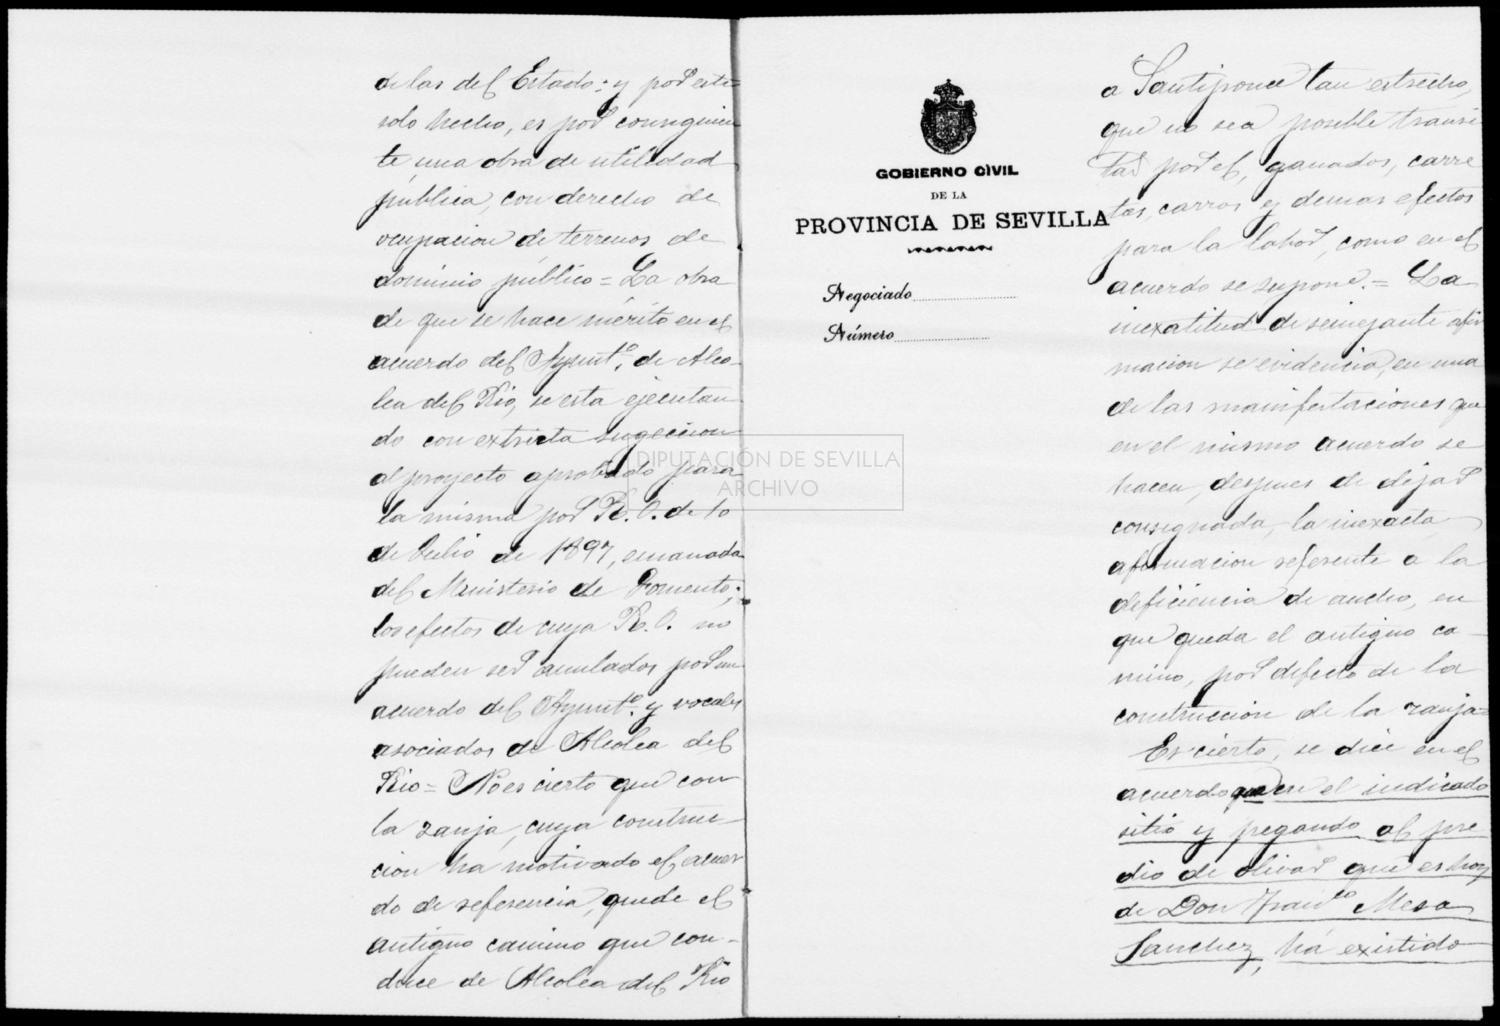 de las del Estado: y por este
solo hecho, es por consiguien
te, una obra de utilidad
pública, con derecho de
ocupacion de terrenos de
dominio público = La obra
de que se hace mérito en el
acuerdo del Ayuntº. de Alco-
lea del Rio, se esta ejecutan
do con extricta sugeccion
al proyecto aprobado para
la misma por R. O. de 10
de Julio de 1897, emanada
del Ministerio de Fomento;
los efectos de cuya R. O. no
pueden ser anulados por un
acuerdo del Ayuntº. y vocales
asociados de Alcolea del
Rio = No es cierto que con
la zanja, cuya construc
cion ha motivado el acuer
do de referencia, quede el
antiguo camino que con-
duce de Alcolea del Rio
GOBIERNO CIVIL
DE LA
PROVINCIA DE SEVILLA
Negociado
Número
a Santiponce tan estrecho,
que no sea posible transi
tar por el, ganados, carre
tas, carros y demas efectos
para la labor, como en el
acuerdo se supone. = La
inexatitud de semejante afir
macion se evidencia, en una
de las manifestaciones que
en el mismo acuerdo se
hacen, despues de dejar
consignada, la inexacta
afirmacion referente a la
deficiencia de ancho, en
que queda el antiguo ca-
mino, por defecto de la
construccion de la zanja=
Es cierto, se dice en el
acuerdo que en el indicado
sitio y pegando al pre
dio de olivar que es hoy
de Don Franco Mesa
Sanchez, há existido
DIPUTACIÓN DE SEVILLA
ARCHIVO